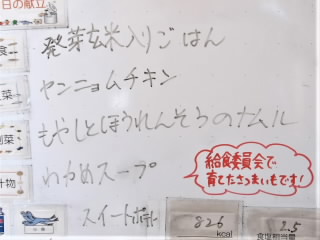 日の献立
食
発芽玄米入りごはん
菜
ヤンニョムチキン
副菜
もやしとほうれんそうのナムル
汁物
わかめスープ
給食委員会で
育てたさつまいもです!
スイートポテト
826
kcal
2.5
食塩相当量